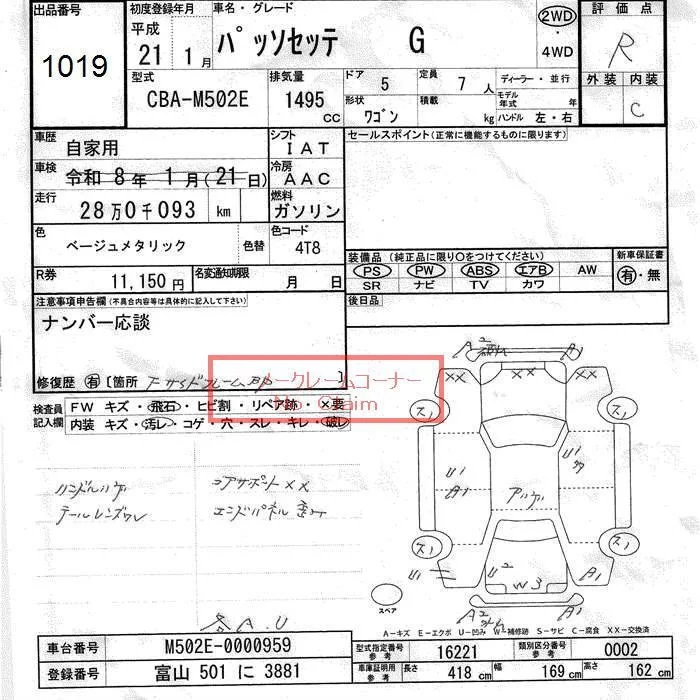 出品番号
1019
初度登録年月
平成
21 年 1 月
車名・グレード
パッソセッテ G
2WD
・
4WD
評価点
R
型式
CBA-M502E
排気量
1495 CC
ドア 5
定員 7 人
形状 ワゴン
積載 kg
ディーラー・並行
モデル年式 年
ハンドル 左・右
外装 内装
C
車歴 自家用
シフト IAT
車検 令和 8年 1月(21日)
冷房 AAC
走行 28万0千093 km
燃料 ガソリン
色 ベージュメタリック 色替
色コード 4T8
R券 11,150円
名変通知期限 月 日
セールスポイント(正常に機能するものに限ります)
装備品(純正品に限り○をつけてください)
PS PW ABS エアB AW
SR ナビ TV カワ
新車保証書
有・無
後日品
注意事項申告欄(不具合内容等は具体的に記入して下さい)
ナンバー応談
修復歴 有 [箇所 ]
ノークレームコーナー
No Claim
検査員記入欄
FW キズ・飛石・ヒビ割・リペア跡・×要
内装 キズ・汚レ・コゲ・穴・スレ・キレ・破レ
ハンドルハゲ
コアサポート XX
テールレンズワレ
エンドパネル 歪ミ
各A.U
A2
A1
XX XX XX
ス1 ス1
U1
A1
ス1 ス1
U1
U2
W3
A1
A2
A1
スペア
A-キズ E-エクボ U-凹み W-補修跡 S-サビ C-腐食 XX-交換済
車台番号 M502E-0000959
登録番号 富山 501 に 3881
型式指定番号 参考 16221
類別区分番号 参考 0002
車庫証明用 参考 長さ 418 cm 幅 169 cm 高さ 162 cm